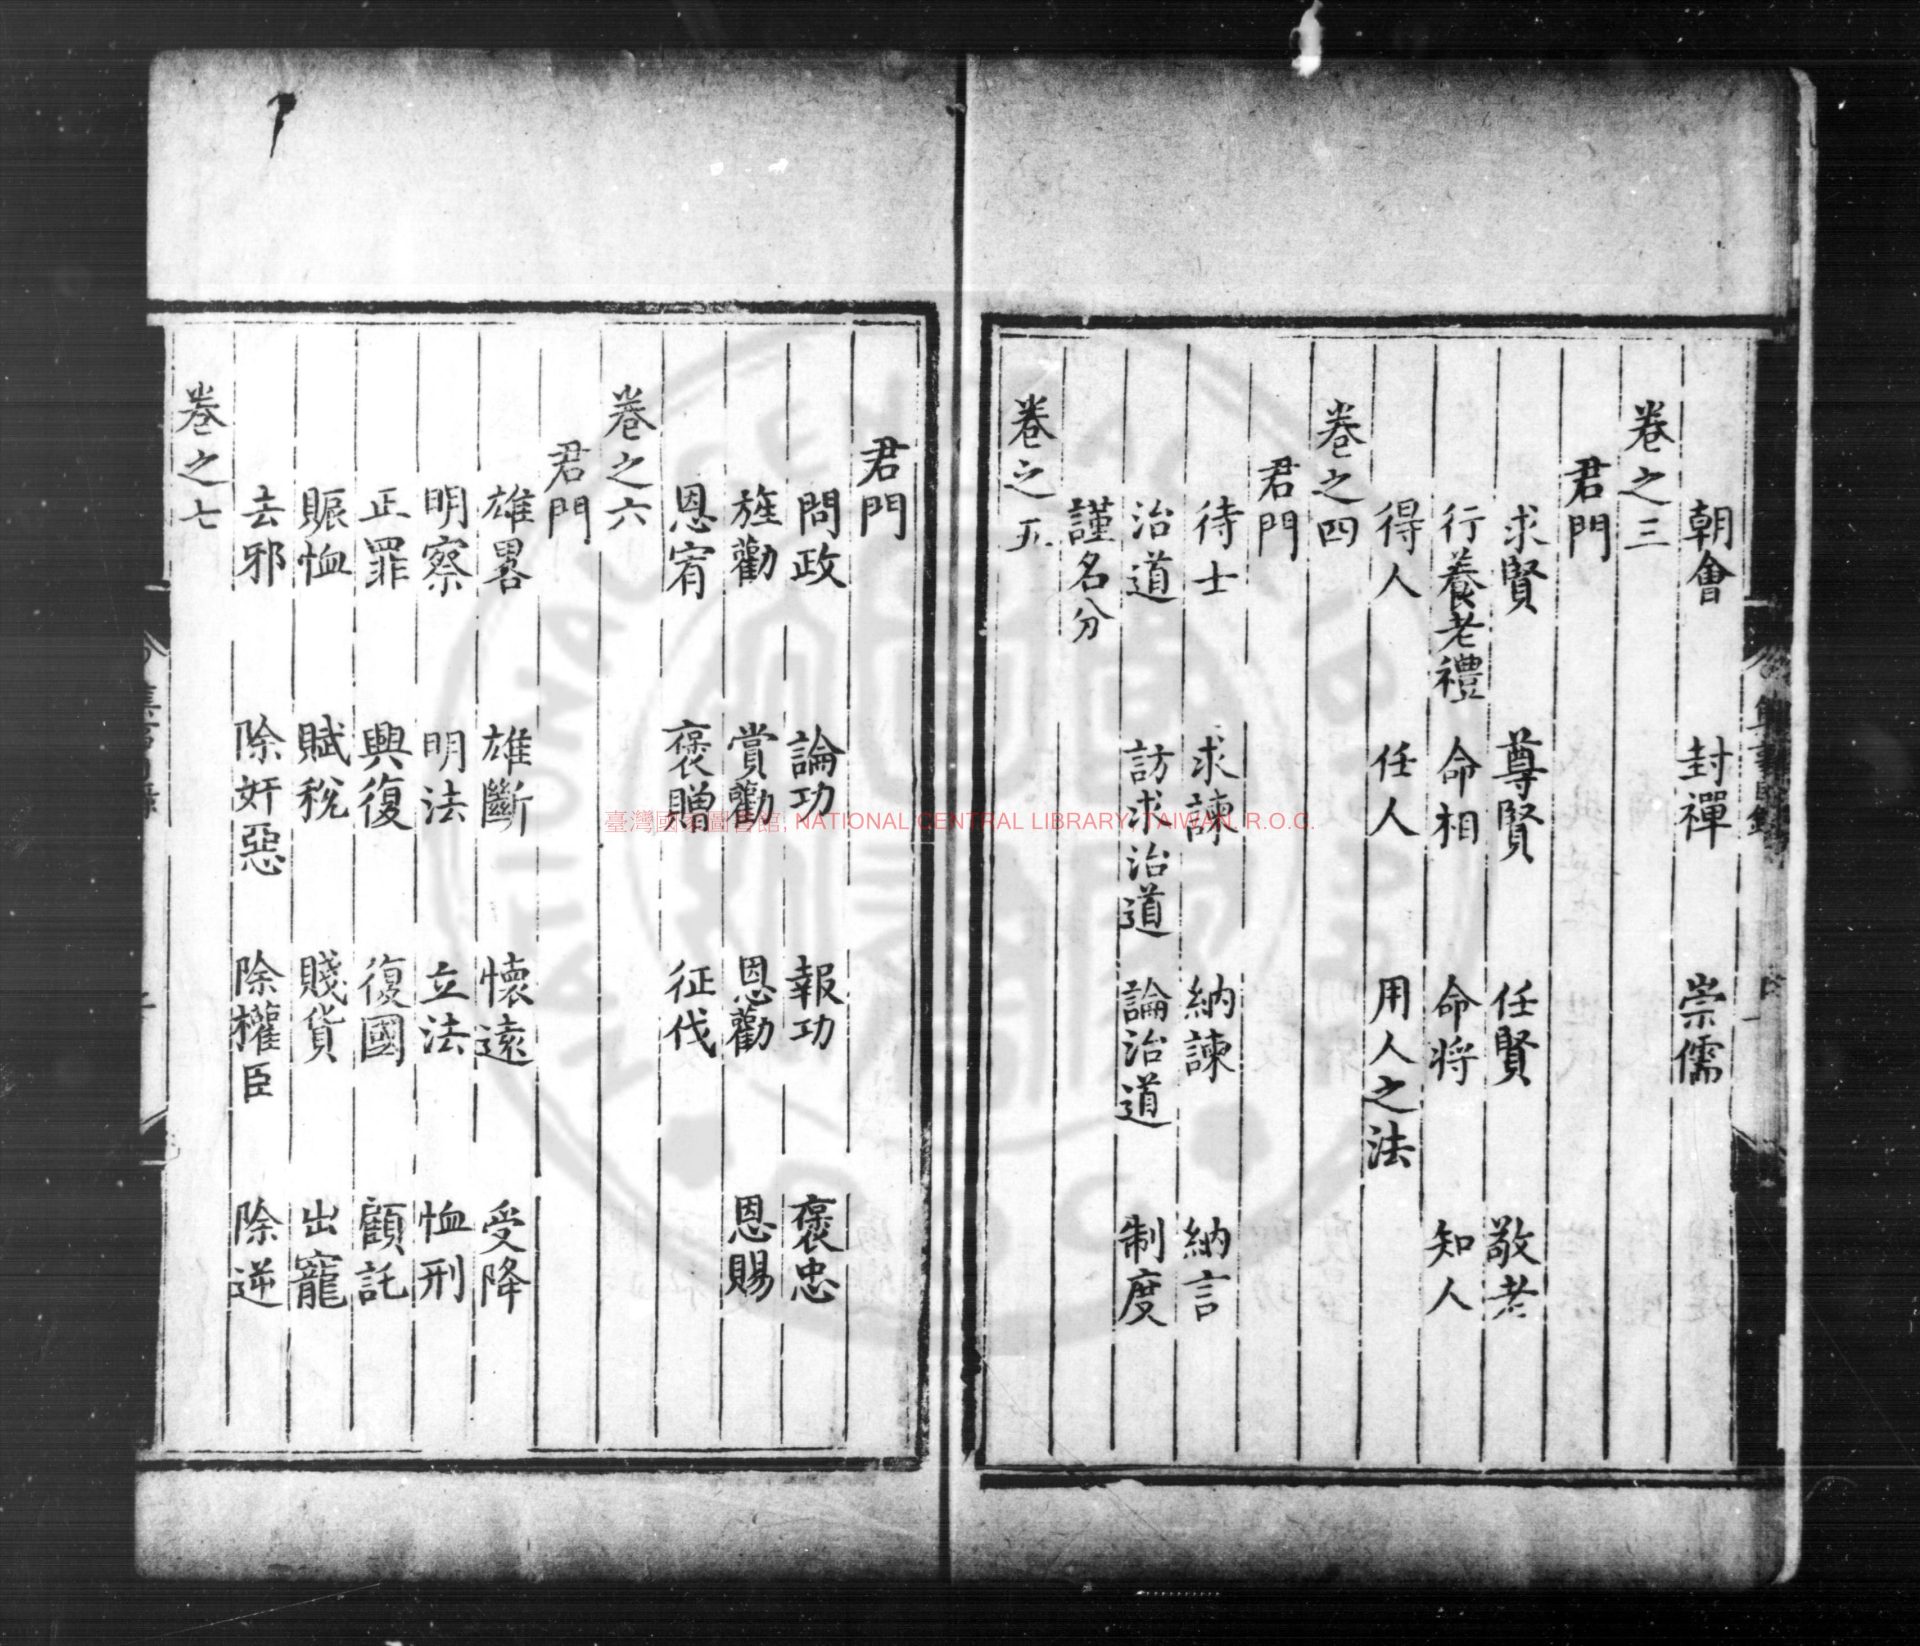 朝會 封禪 崇儒
卷之三
君門
求賢 尊賢 任賢 敬老
行養老禮 命相 命將 知人
得人 任人 用人之法
卷之四
君門
待士 求諫 納諫 納言
治道 訪求治道 論治道 制度
謹名分
卷之五
君門
問政 論功 報功 褒忠
旌勸 賞勸 恩勸 恩賜
恩宥 褒贈 征伐
卷之六
君門
雄畧 雄斷 懷遠 受降
明察 明法 立法 恤刑
正罪 興復 復國 顧託
賑恤 賦稅 賤貨 出寵
去邪 除奸惡 除權臣 除逆
卷之七
臺灣國家圖書館, NATIONAL CENTRAL LIBRARY, TAIWAN, R.O.C.